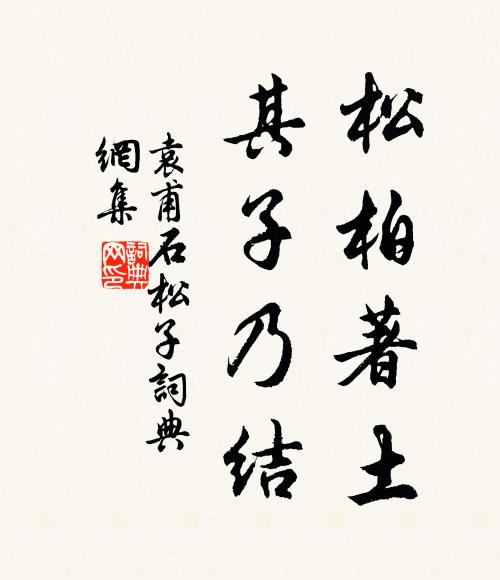 松柏著土
其子乃结
袁甫石松子詞典
網集
詞典
网印